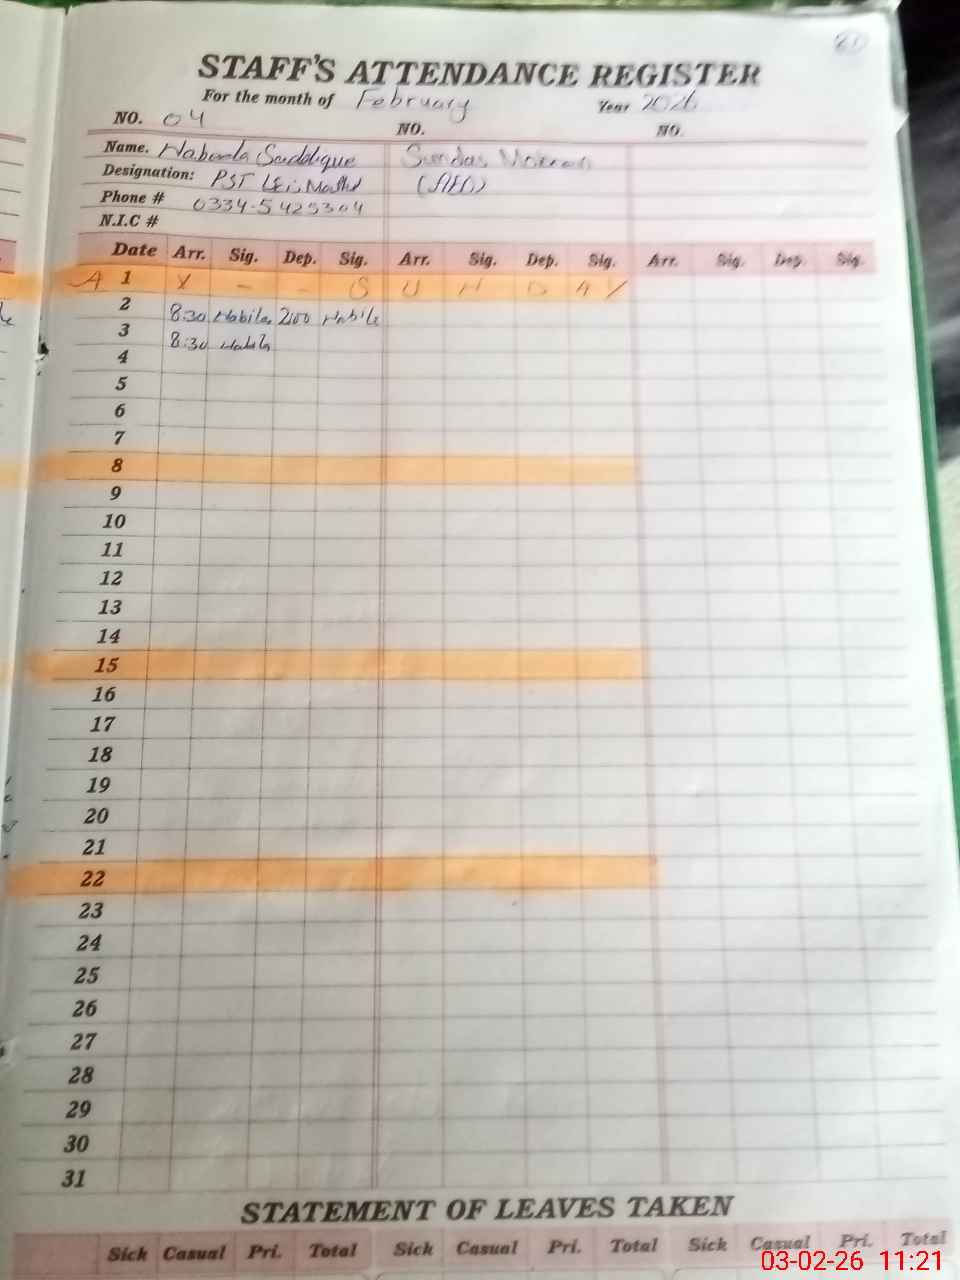 STAFF'S ATTENDANCE REGISTER
For the month of February Year 2026
NO. 04 NO. NO.
Name.
Designation: PST
Phone # 0334-5425304
N.I.C #
Date Arr. Sig. Dep. Sig. Arr. Sig. Dep. Sig. Arr. Sig. Dep. Sig.
1 X - - S U N D A Y
2 8:30 2:00
3 8:30
4
5
6
7
8
9
10
11
12
13
14
15
16
17
18
19
20
21
22
23
24
25
26
27
28
29
30
31
STATEMENT OF LEAVES TAKEN
Sick Casual Pri. Total Sick Casual Pri. Total Sick Casual Pri. Total
03-02-26 11:21